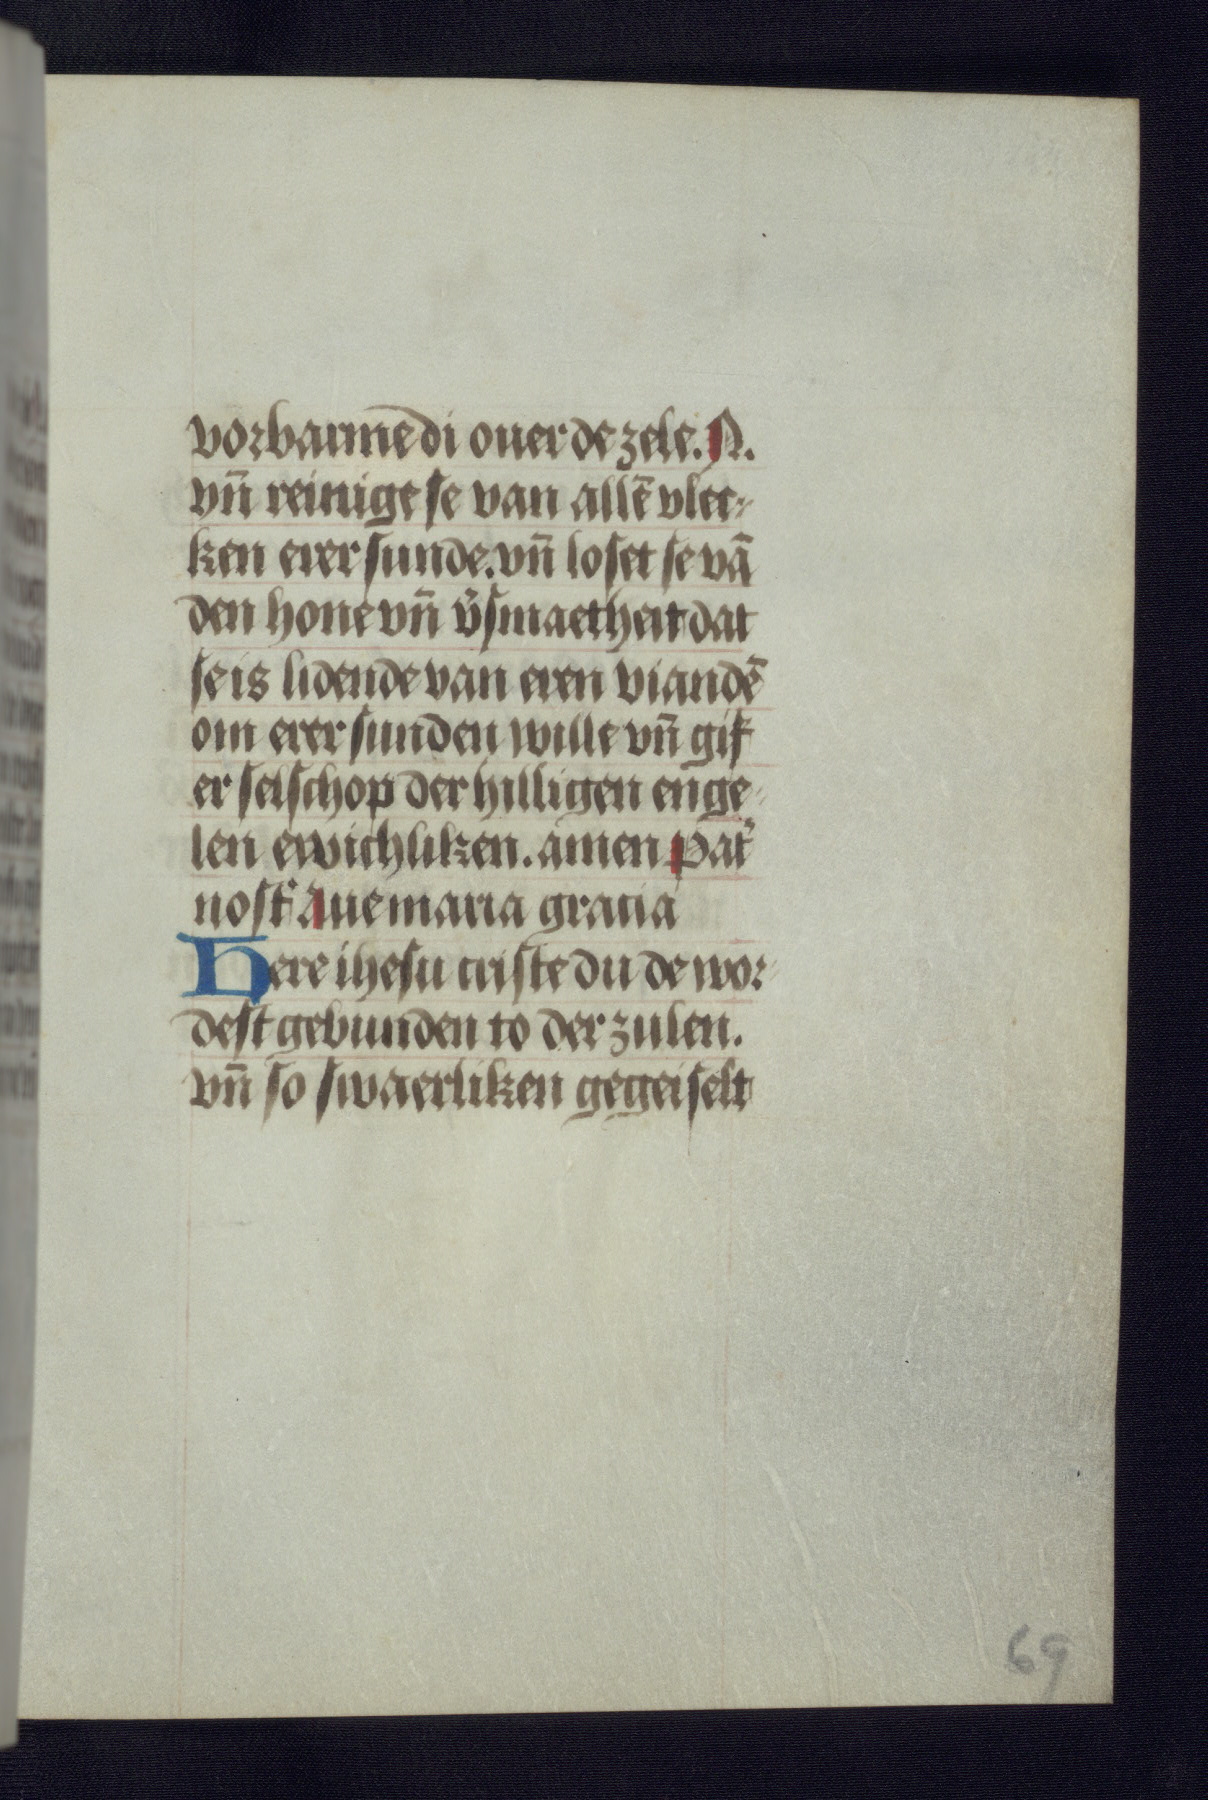 vorbarmē di ouer de zele. N.
vn̄ reinige se van allē vlec-
ken erer sunde. vn̄ loset se vā
den hone vn̄ v̄smaetheit dat
se is lidende van eren viandē
om erer sunden wille vn̄ gif
er selschop der hilligen enge-
len ewichliken. amen Pat̄
nost̄ Aue maria gracia
Here ihesu criste du de wor-
dest gebunden to der zulen.
vn̄ so swaerliken gegeiselt
69